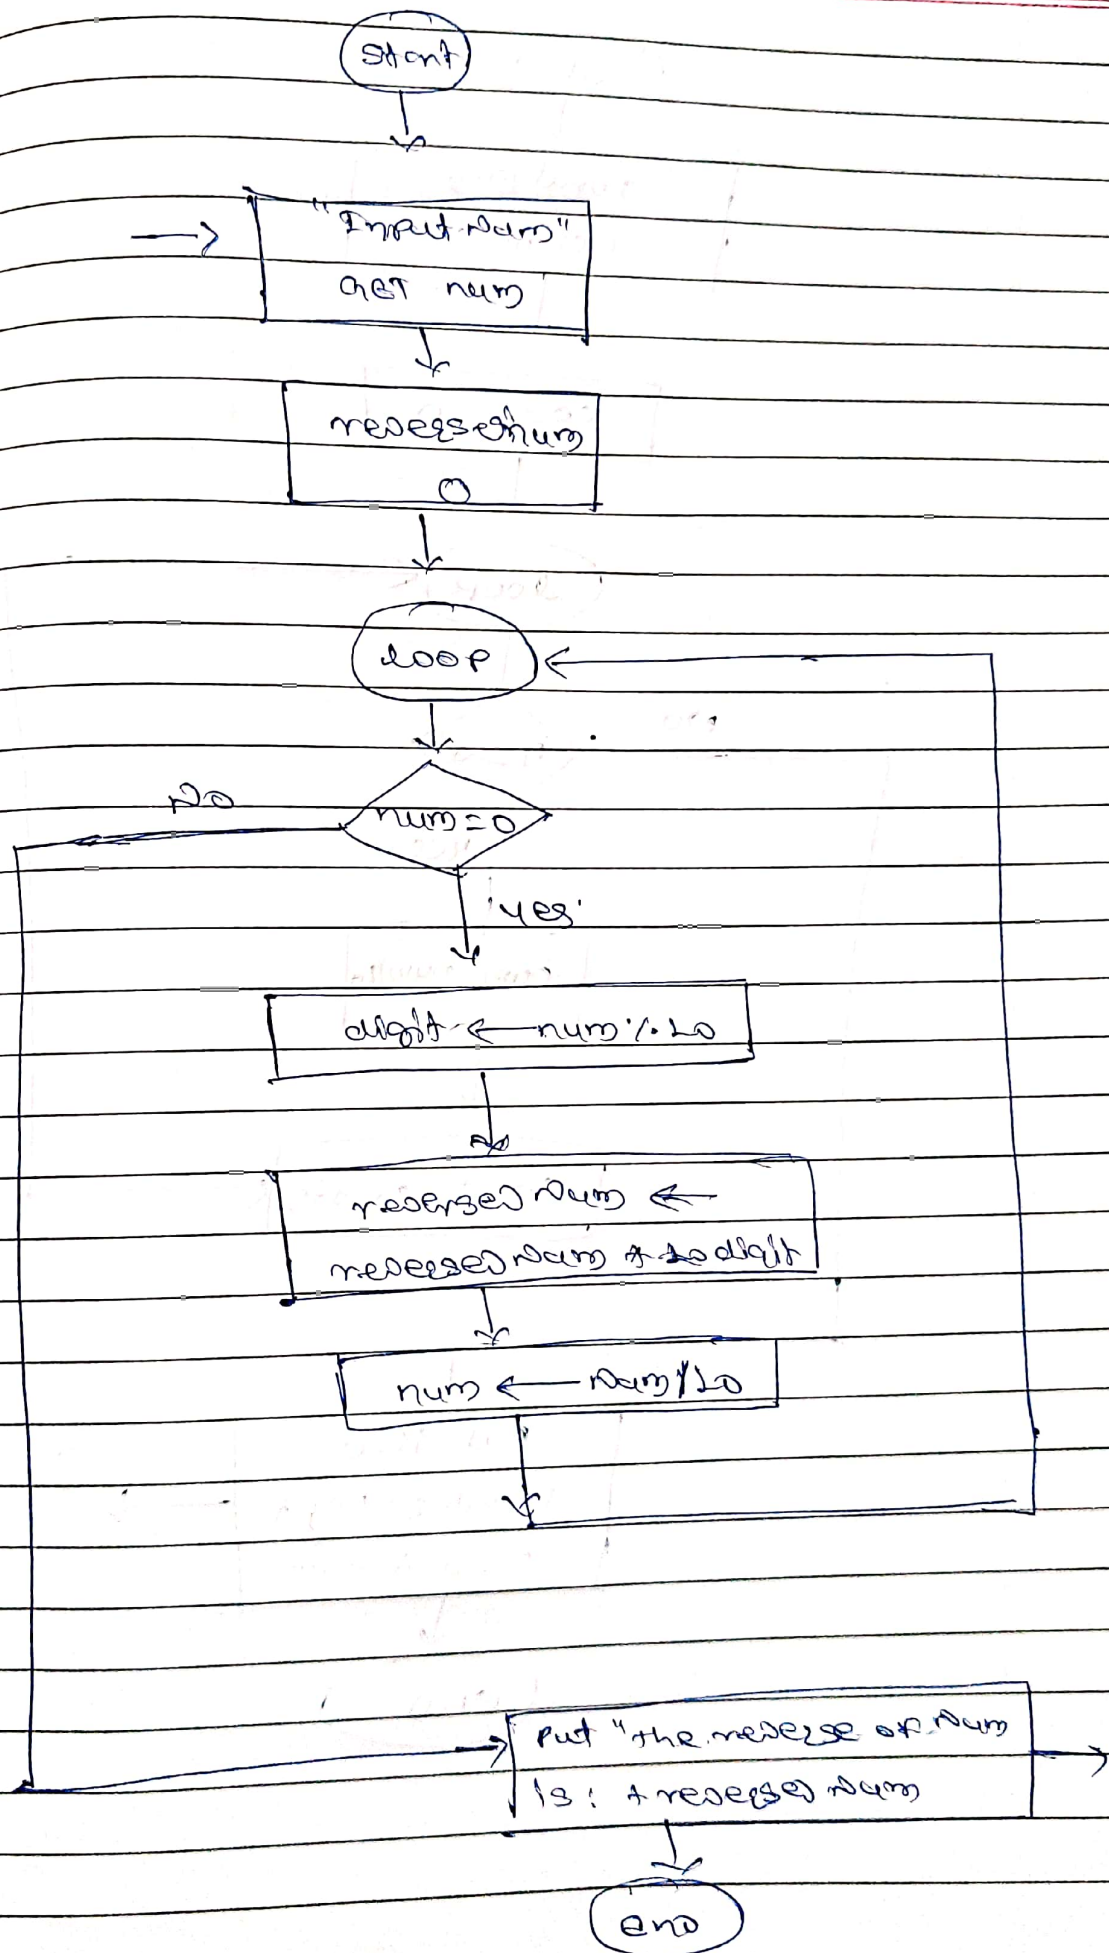 Start
"Input Num"
GET num
reversednum
0
loop
No
num=0
'yes'
digit ← num % 10
reversed Num ←
reversed Num * 10 digit
num ← Num/10
Put "the reverse of Num
is: + reversed Num
end